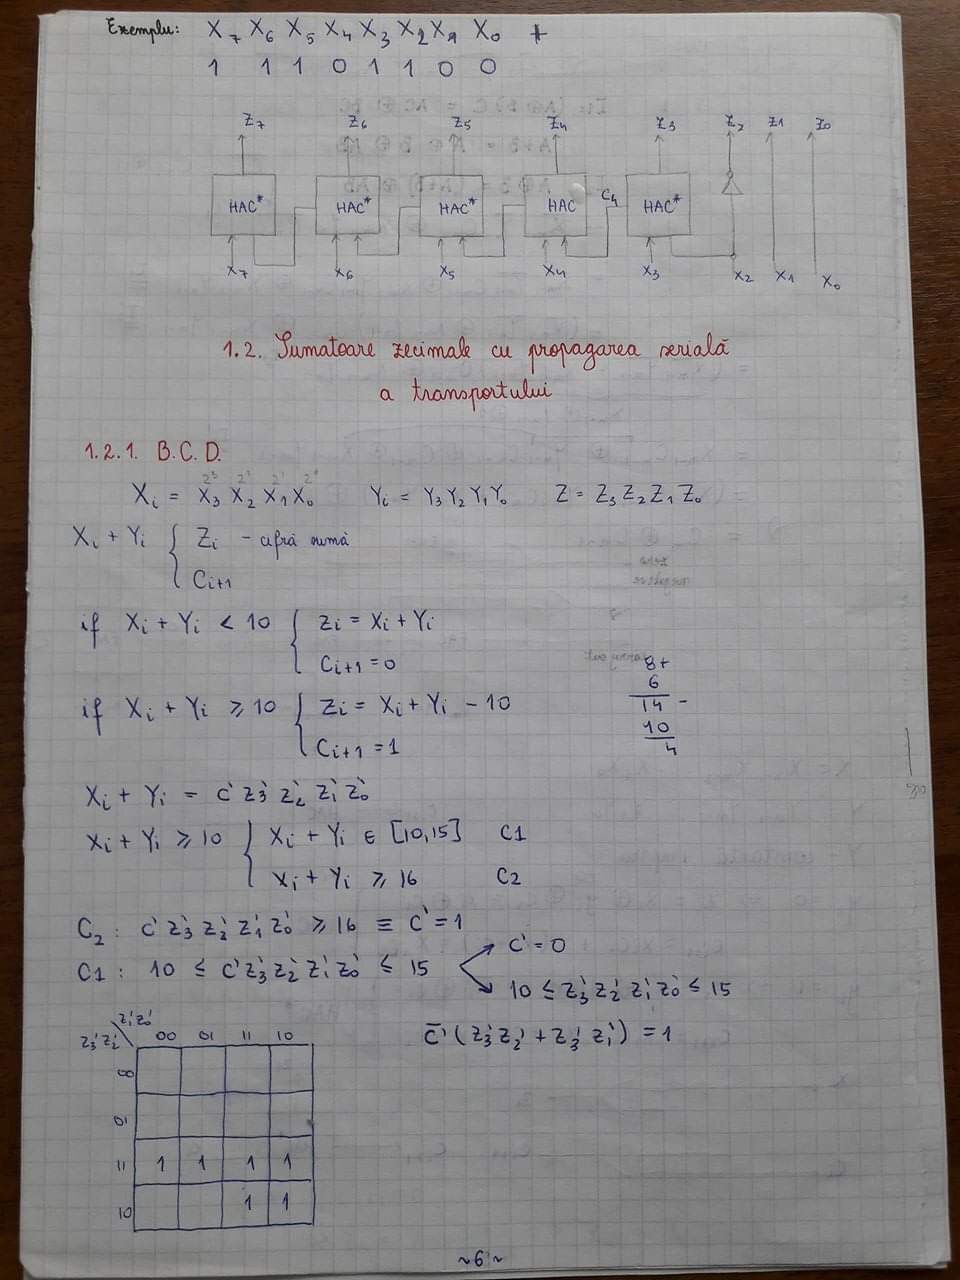 Exemplu: X₇ X₆ X₅ X₄ X₃ X₂ X₁ X₀ +
1 1 1 0 1 1 0 0
Z₇ Z₆ Z₅ Z₄ Z₃ Z₂ Z₁ Z₀
HAC* HAC* HAC* HAC C₄ HAC*
X₇ X₆ X₅ X₄ X₃ X₂ X₁ X₀
1.2. Sumatoare zecimale cu propagarea serială
a transportului
1.2.1. B.C.D.
2³ 2² 2¹ 2⁰
Xᵢ = X₃ X₂ X₁ X₀ Yᵢ = Y₃ Y₂ Y₁ Y₀ Z = Z₃ Z₂ Z₁ Z₀
Xᵢ + Yᵢ { Zᵢ - cifră sumă
Cᵢ₊₁
if Xᵢ + Yᵢ < 10 { Zᵢ = Xᵢ + Yᵢ
Cᵢ₊₁ = 0
if Xᵢ + Yᵢ ≥ 10 { Zᵢ = Xᵢ + Yᵢ - 10
Cᵢ₊₁ = 1
8+
6
14 -
10
4
Xᵢ + Yᵢ = C' Z₃' Z₂' Z₁' Z₀'
Xᵢ + Yᵢ ≥ 10 { Xᵢ + Yᵢ ∈ [10,15] C1
Xᵢ + Yᵢ ≥ 16 C2
C₂ : C' Z₃' Z₂' Z₁' Z₀' ≥ 16 ≡ C' = 1
C1 : 10 ≤ C' Z₃' Z₂' Z₁' Z₀' ≤ 15
C' = 0
10 ≤ Z₃' Z₂' Z₁' Z₀' ≤ 15
C̄' (Z₃' Z₂' + Z₃' Z₁') = 1
Z₁' Z₀'
Z₃' Z₂' 00 01 11 10
00
01
11 1 1 1 1
10 1 1
~6~